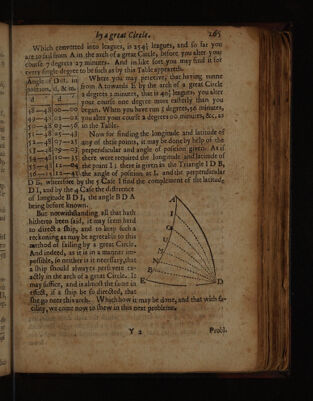 by a great Circle. 165
Which converted into leagues, is 254½ leagues, and so far you
are to sail from A in the arch of a great Circle, before you alter your
course 7 degrees 27 minutes. And in like sort you may find it for
every single degree to be such as by this Table appeareth.
Angle of Dist. in
position. d, & m.
d d
48—48 00—00
49—48 02—02
50—48 03—56
51—48 05—48
52—48 07—28
53—48 09—03
Where you may perceive, that having sunne
from A towards E by the arch of a great Circle
2 degrees 2 minutes, that is 40⅔ leagues you alter
your course one degree more easterly than you
began. When you have run 3 degrees, 56 minutes,
you alter your course 2 degrees 00 minuts, &c, as
in the Table.
Now for finding the longitude and latitude of
any of these points, it may be done by help of the
perpendicular and angle of position given: As if
there were required the longitude and latitude of
the point I: there is given in the Triangle I D B,
the angle of position at I, and the perpendicular
D B, wherefore by the 5 Case I find the complement of the latitude,
D I, and by the 4 Case the difference
of longitude B D I, the angle B D A
being before known.
But notwithstanding all that hath
hitherto been said, it may seem hard
to direct a ship, and to keep such a
reckoning as may be agreeable to this
method of sailing by a great Circle.
And indeed, as it is in a manner im-
possible, so neither is it necessary, that
a ship should alwayes persevere ex-
actly in the arch of a great Circle. It
may suffice, and is almost the same in
effect, if a ship be so directed, that
she go near this arch. Which how it may be done, and that with fa-
cility, we come now to shew in this next probleme.
A
I
O
U
M
N
B
E
D
Y 2 Probl.